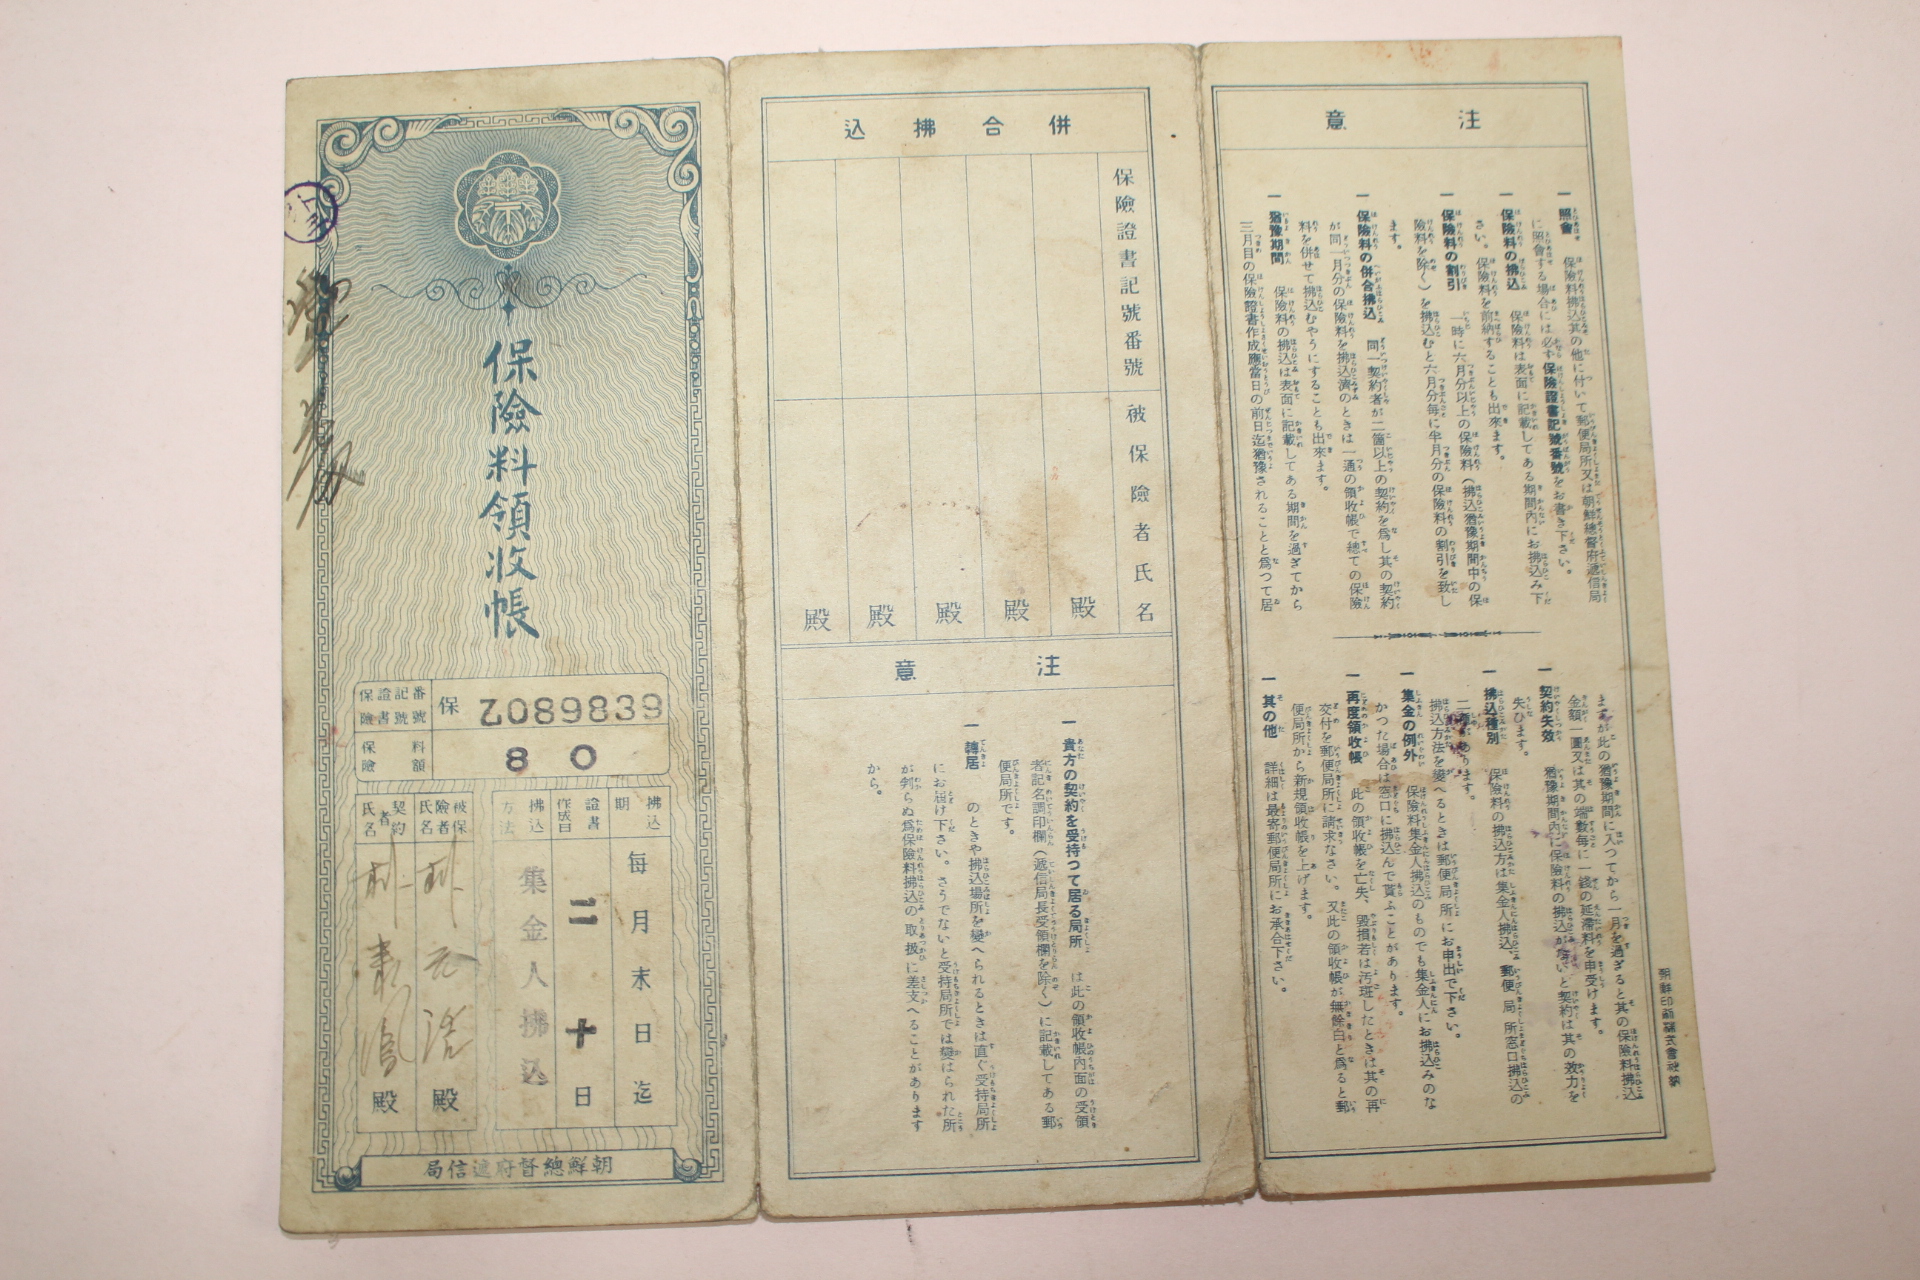 保險料領收帳
保險證書記號番號
保 Z089839
保險料額
80
拂込期
每月末日迄
證書作成日
二十日
拂込方法
集金人拂込
被保險者氏名
殿
契約者氏名
殿
朝鮮總督府遞信局
併合拂込
保險證書記號番號
被保險者氏名
殿
殿
殿
殿
殿
注意
一 貴方の契約を受持つて居る局所 は此の領收帳內面の受領
者記名調印欄（遞信局長受領欄を除く）に記載してある郵
便局所です。
一 轉居 のときや拂込場所を變へられるときは直ぐ受持局所
にお屆け下さい。さうでないと受持局所では變はられた所
が判らぬ爲保險料拂込の取扱に差支へることがあります
から。
注意
一 照會 保險料拂込其の他に付いて郵便局所又は朝鮮總督府遞信局
に照會する場合には必ず保險證書記號番號をお書き下さい。
一 保險料の拂込 保險料は表面に記載してある期間內にお拂込み下
さい。保險料を前納することも出來ます。
一 保險料の割引 一時に六月分以上の保險料（拂込猶豫期間中の保
險料を除く）を拂込むと六月分每に半月分の保險料の割引を致し
ます。
一 保險料の併合拂込 同一契約者が二箇以上の契約を爲し其の契約
が同一月分の保險料を拂込濟のときは一通の領收帳で總ての保險
料を併せて拂込むやうにすることも出來ます。
一 猶豫期間 保險料の拂込は表面に記載してある期間を過ぎてから
三月目の保險證書作成應當日の前日迄猶豫されることと爲つて居
ますが此の猶豫期間に入つてから一月を過ぎると其の保險料拂込
金額一圓又は其の端數每に一錢の延滯料を申受けます。
一 契約失效 猶豫期間內に保險料の拂込がないと契約は其の效力を
失ひます。
一 拂込種別 保險料の拂込方は集金人拂込、郵便局所窓口拂込の
二種あります。
拂込方法を變へるときは郵便局所にお申出で下さい。
一 集金の例外 保險料集金人拂込のものでも集金人にお拂込みのな
かつた場合は窓口に拂込んで貰ふことがあります。
一 再度領收帳 此の領收帳を亡失、毀損若は汚斑したときは其の再
交付を郵便局所に請求なさい。又此の領收帳が無餘白と爲ると郵
便局所から新規領收帳を上げます。
一 其の他 詳細は最寄郵便局所にお承合下さい。
朝鮮印刷株式會社納